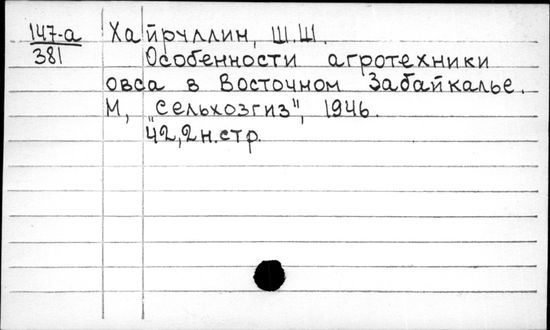 147-а Хайруллин, Ш.Ш.
381 Особенности агротехники
овса в Восточном Забайкалье.
М, "Сельхозгиз", 1946.
42,2н.стр.